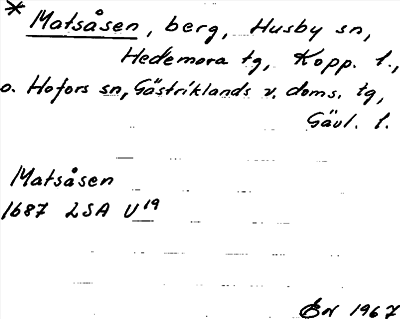 * Matsåsen, berg, Husby sn,
Hedemora tg, Kopp. l.,
o. Hofors sn, Gästriklands v. doms. tg,
Gävl. l.
Matsåsen
1687 LSA U19
1967